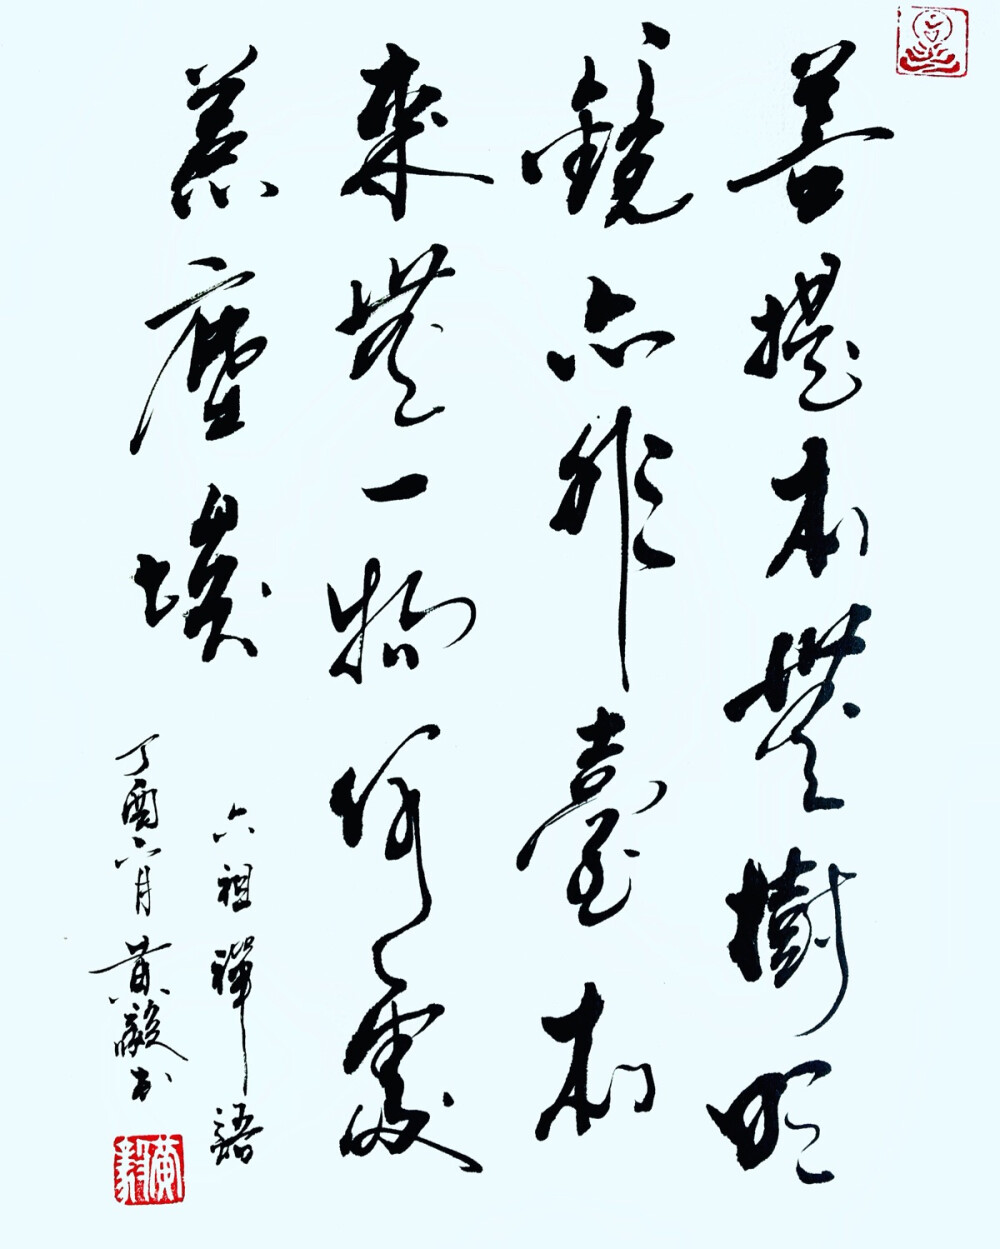 菩提本無樹明
鏡亦非臺本
來無一物何處
惹塵埃
六祖禪語
丁酉六月黄毅书
黄毅